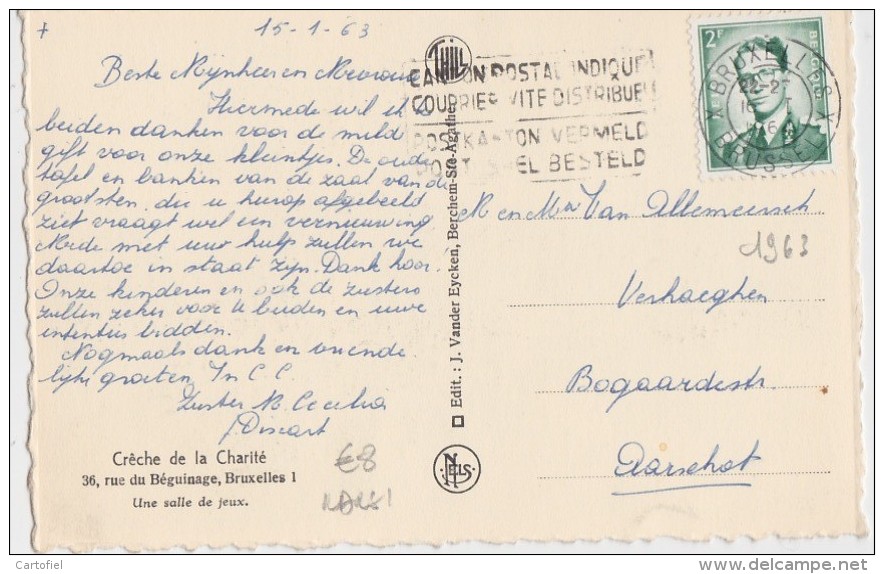 +
15-1-63
Beste Mijnheer en Mevrouw
Hiermede wil ik u
beiden danken voor de milde
gift voor onze kleintjes. De oude
tafel en banken van de zaal van de
grootsten, die u hierop afgebeeld
ziet vraagt wel een vernieuwing
Mede met uw hulp zullen we
daartoe in staat zijn. Dank hoor.
Onze kinderen en ook de zusters
zullen zeker voor U beiden en uwe
intenties bidden.
Nogmaals dank en vriende
lijke groeten In C.C.
Zuster M. Cecilia
Discart
Crêche de la Charité
36, rue du Béguinage, Bruxelles 1
Une salle de jeux.
€8
Edit. : J. Vander Eycken, Berchem-Ste-Agathe
THILL
NELS
POSTAL INDIQUE
COURRIER VITE DISTRIBUE
VERMELD
BESTELD
2F
BRUXELLES X
BRUSSEL X
22-2
M en Mw Van Allemeersch
1963
Verhaeghen
Bogaardestr.
Aarschot
Cartofiel
www.delcampe.net